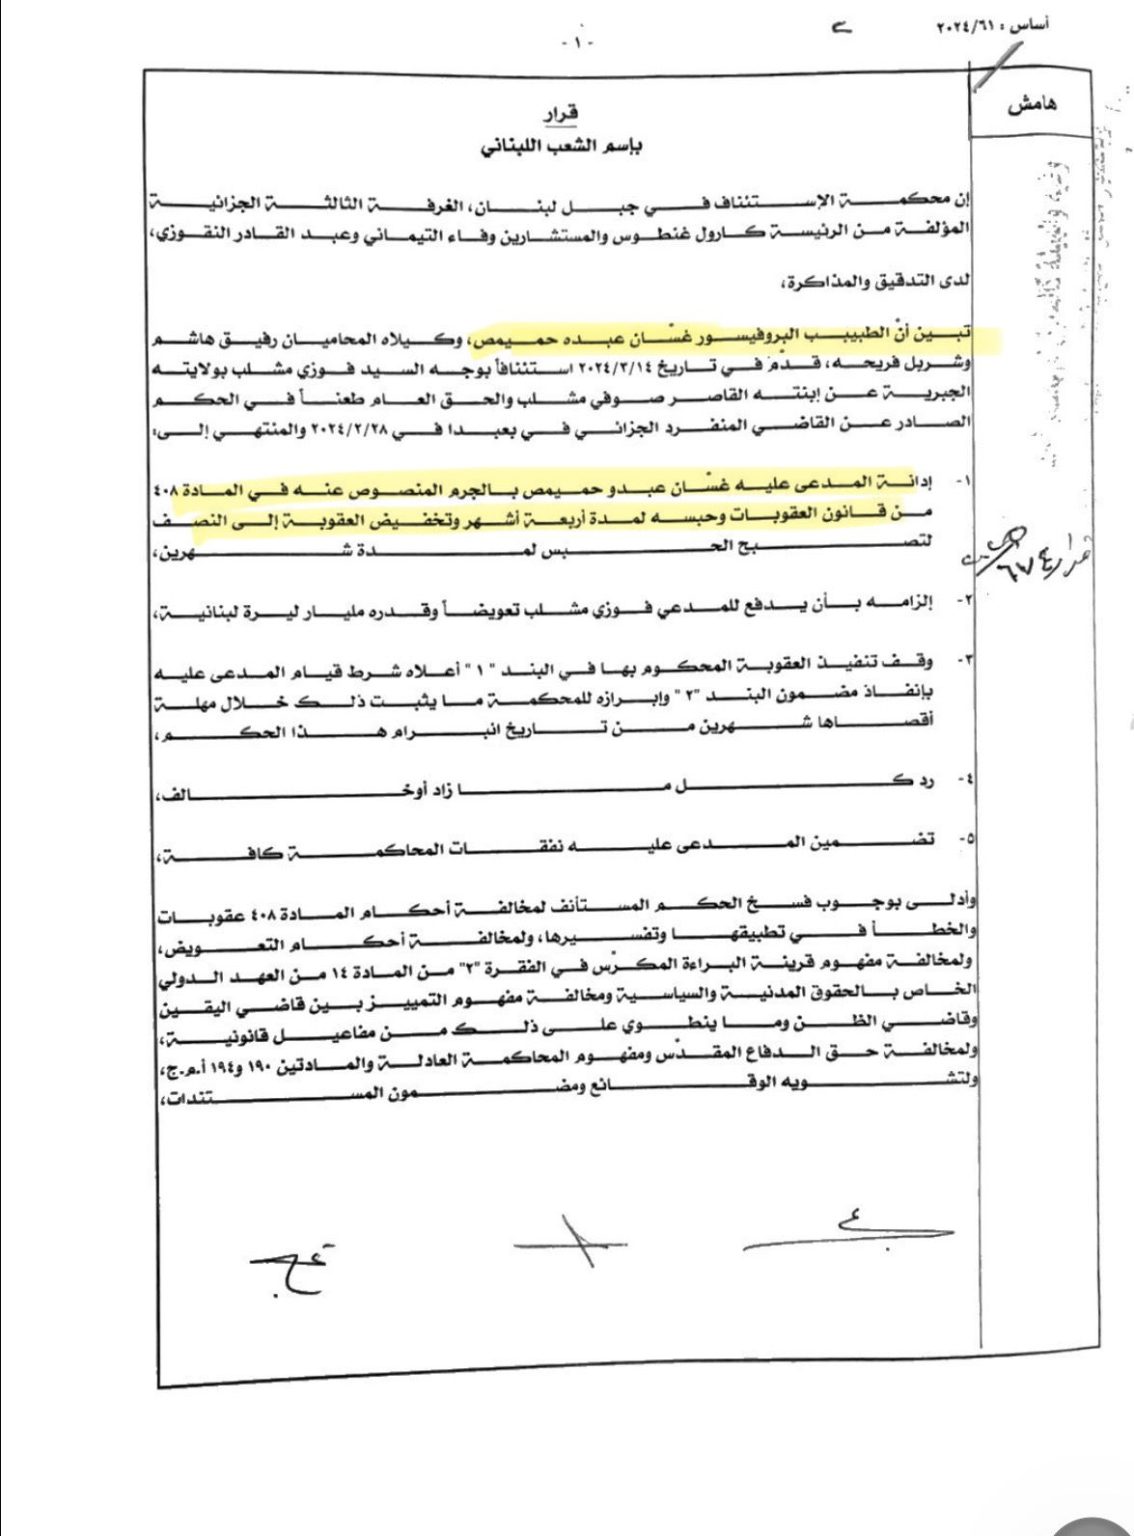 أساس : ٢٠٢٤/٦١
- ١ -
هامش
قرار
بإسم الشعب اللبناني
إن محكمة الإستئناف في جبل لبنان، الغرفة الثالثة الجزائية
المؤلفة من الرئيسة كارول غنطوس والمستشارين وفاء التيماني وعبد القادر النقوزي،
لدى التدقيق والمذاكرة،
تبين أنّ الطبيب البروفيسور غسّان عبده حميمص، وكيلاه المحاميان رفيق هاشم
وشربل فريحه، قدّم في تاريخ ٢٠٢٤/٣/١٤ استئنافاً بوجه السيد فوزي مشلب بولايته
الجبرية عن إبنته القاصر صوفي مشلب والحق العام طعناً في الحكم
الصادر عن القاضي المنفرد الجزائي في بعبدا في ٢٠٢٤/٢/٢٨ والمنتهي إلى:
١- إدانة المدعى عليه غسّان عبدو حميمص بالجرم المنصوص عنه في المادة ٤٠٨
من قانون العقوبات وحبسه لمدة أربعة أشهر وتخفيض العقوبة إلى النصف
لتصبح الحبس لمدة شهرين،
٢- إلزامه بأن يدفع للمدعي فوزي مشلب تعويضاً وقدره مليار ليرة لبنانية،
٣- وقف تنفيذ العقوبة المحكوم بها في البند "١" أعلاه شرط قيام المدعى عليه
بإنفاذ مضمون البند "٢" وإبرازه للمحكمة ما يثبت ذلك خلال مهلة
أقصاها شهرين من تاريخ انبرام هذا الحكم،
٤- رد كل ما زاد أوخالف،
٥- تضمين المدعى عليه نفقات المحاكمة كافة،
وأدلى بوجوب فسخ الحكم المستأنف لمخالفة أحكام المادة ٤٠٨ عقوبات
والخطأ في تطبيقها وتفسيرها، ولمخالفة أحكام التعويض،
ولمخالفة مفهوم قرينة البراءة المكرّس في الفقرة "٢" من المادة ١٤ من العهد الدولي
الخاص بالحقوق المدنية والسياسية ومخالفة مفهوم التمييز بين قاضي اليقين
وقاضي الظن وما ينطوي على ذلك من مفاعيل قانونية،
ولمخالفة حق الدفاع المقدّس ومفهوم المحاكمة العادلة والمادتين ١٩٠ و١٩٤ أ.م.ج،
ولتشويه الوقائع ومضمون المستندات،